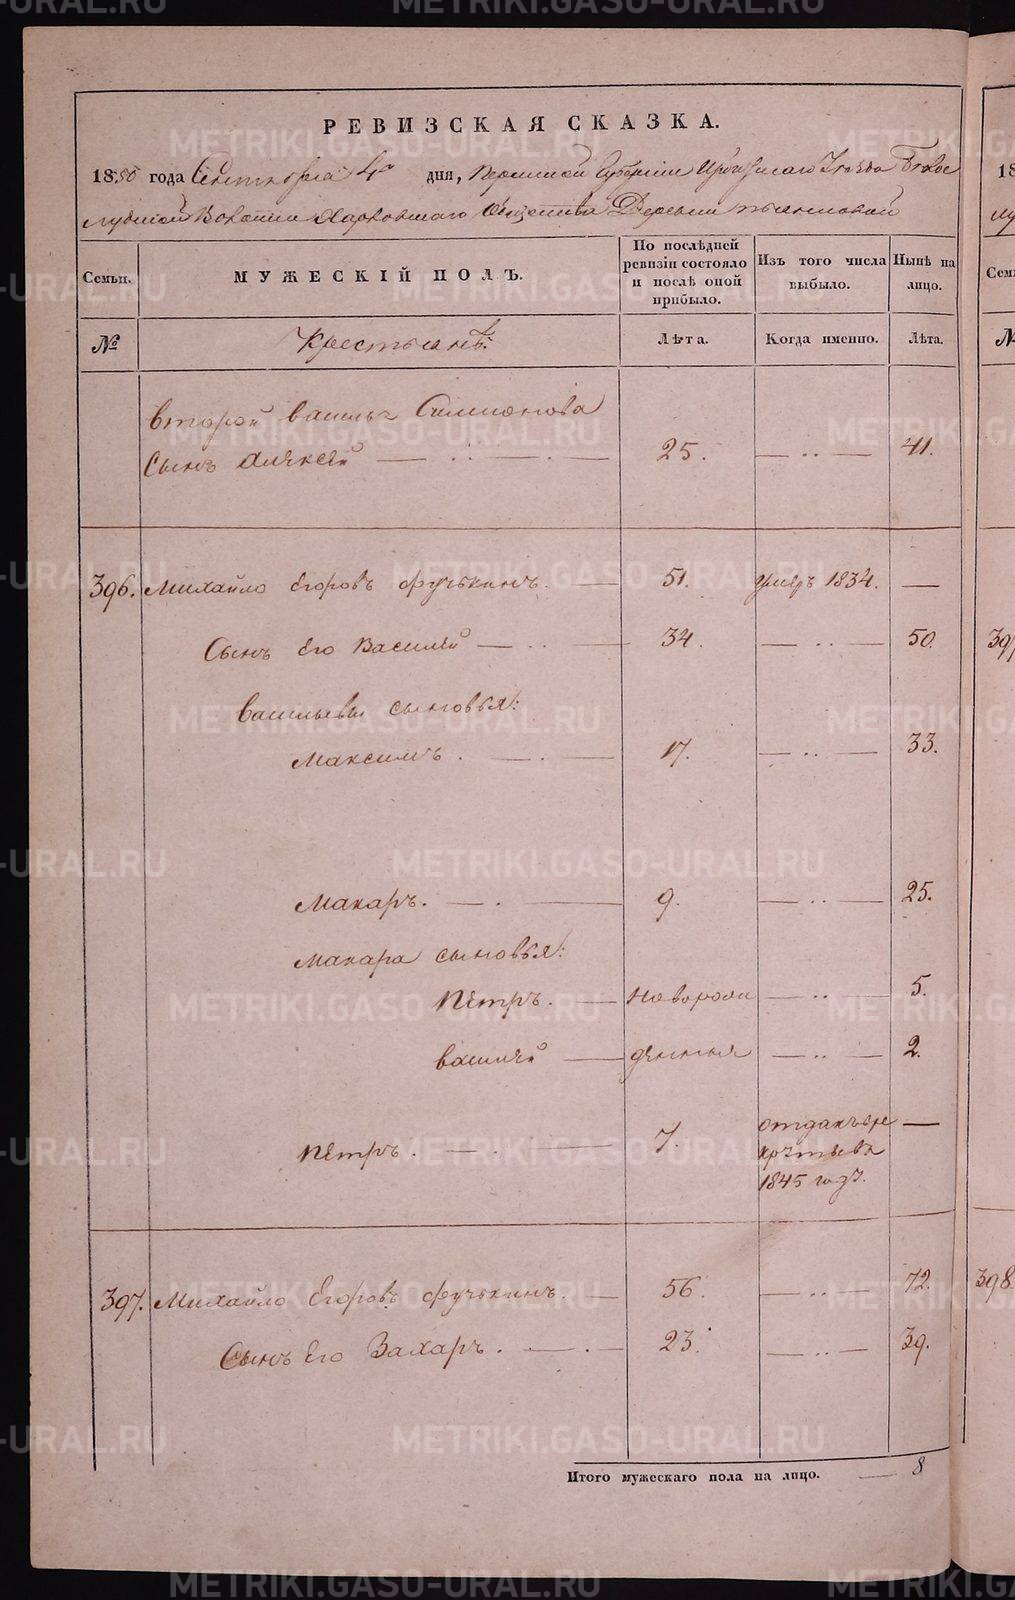 РЕВИЗСКАЯ СКАЗКА.
1850 года Сентября 4го дня, Пермской Губернии Ирбитскаго Уезда Белослудской Волости Харловскаго Общества Деревни
Семьи. МУЖЕСКІЙ ПОЛЪ. По послѣдней ревизіи состояло и послѣ оной прибыло. Изъ того числа выбыло. Нынѣ на лицо.
№ Крестьянъ: Лѣта. Когда именно. Лѣта.
второй василья Симионова
Сынъ Алексѣй 25. 41.
396. Михайло Егоровъ 51. умеръ 1834.
Сынъ Его Василей 34. 50.
Васильевы сыновья:
Максимъ. 17. 33.
Макаръ. 9. 25.
Макара сыновья:
Петръ. новорож 5.
василей денныя 2.
Петръ. 7. отданъ въ рекруты въ 1845 годъ.
397. Михайло Егоровъ 56. 72.
Сынъ Его Захаръ. 23. 39.
Итого мужескаго пола на лицо. 8
18
Сем
№
397
398.
METRIKI.GASO-URAL.RU